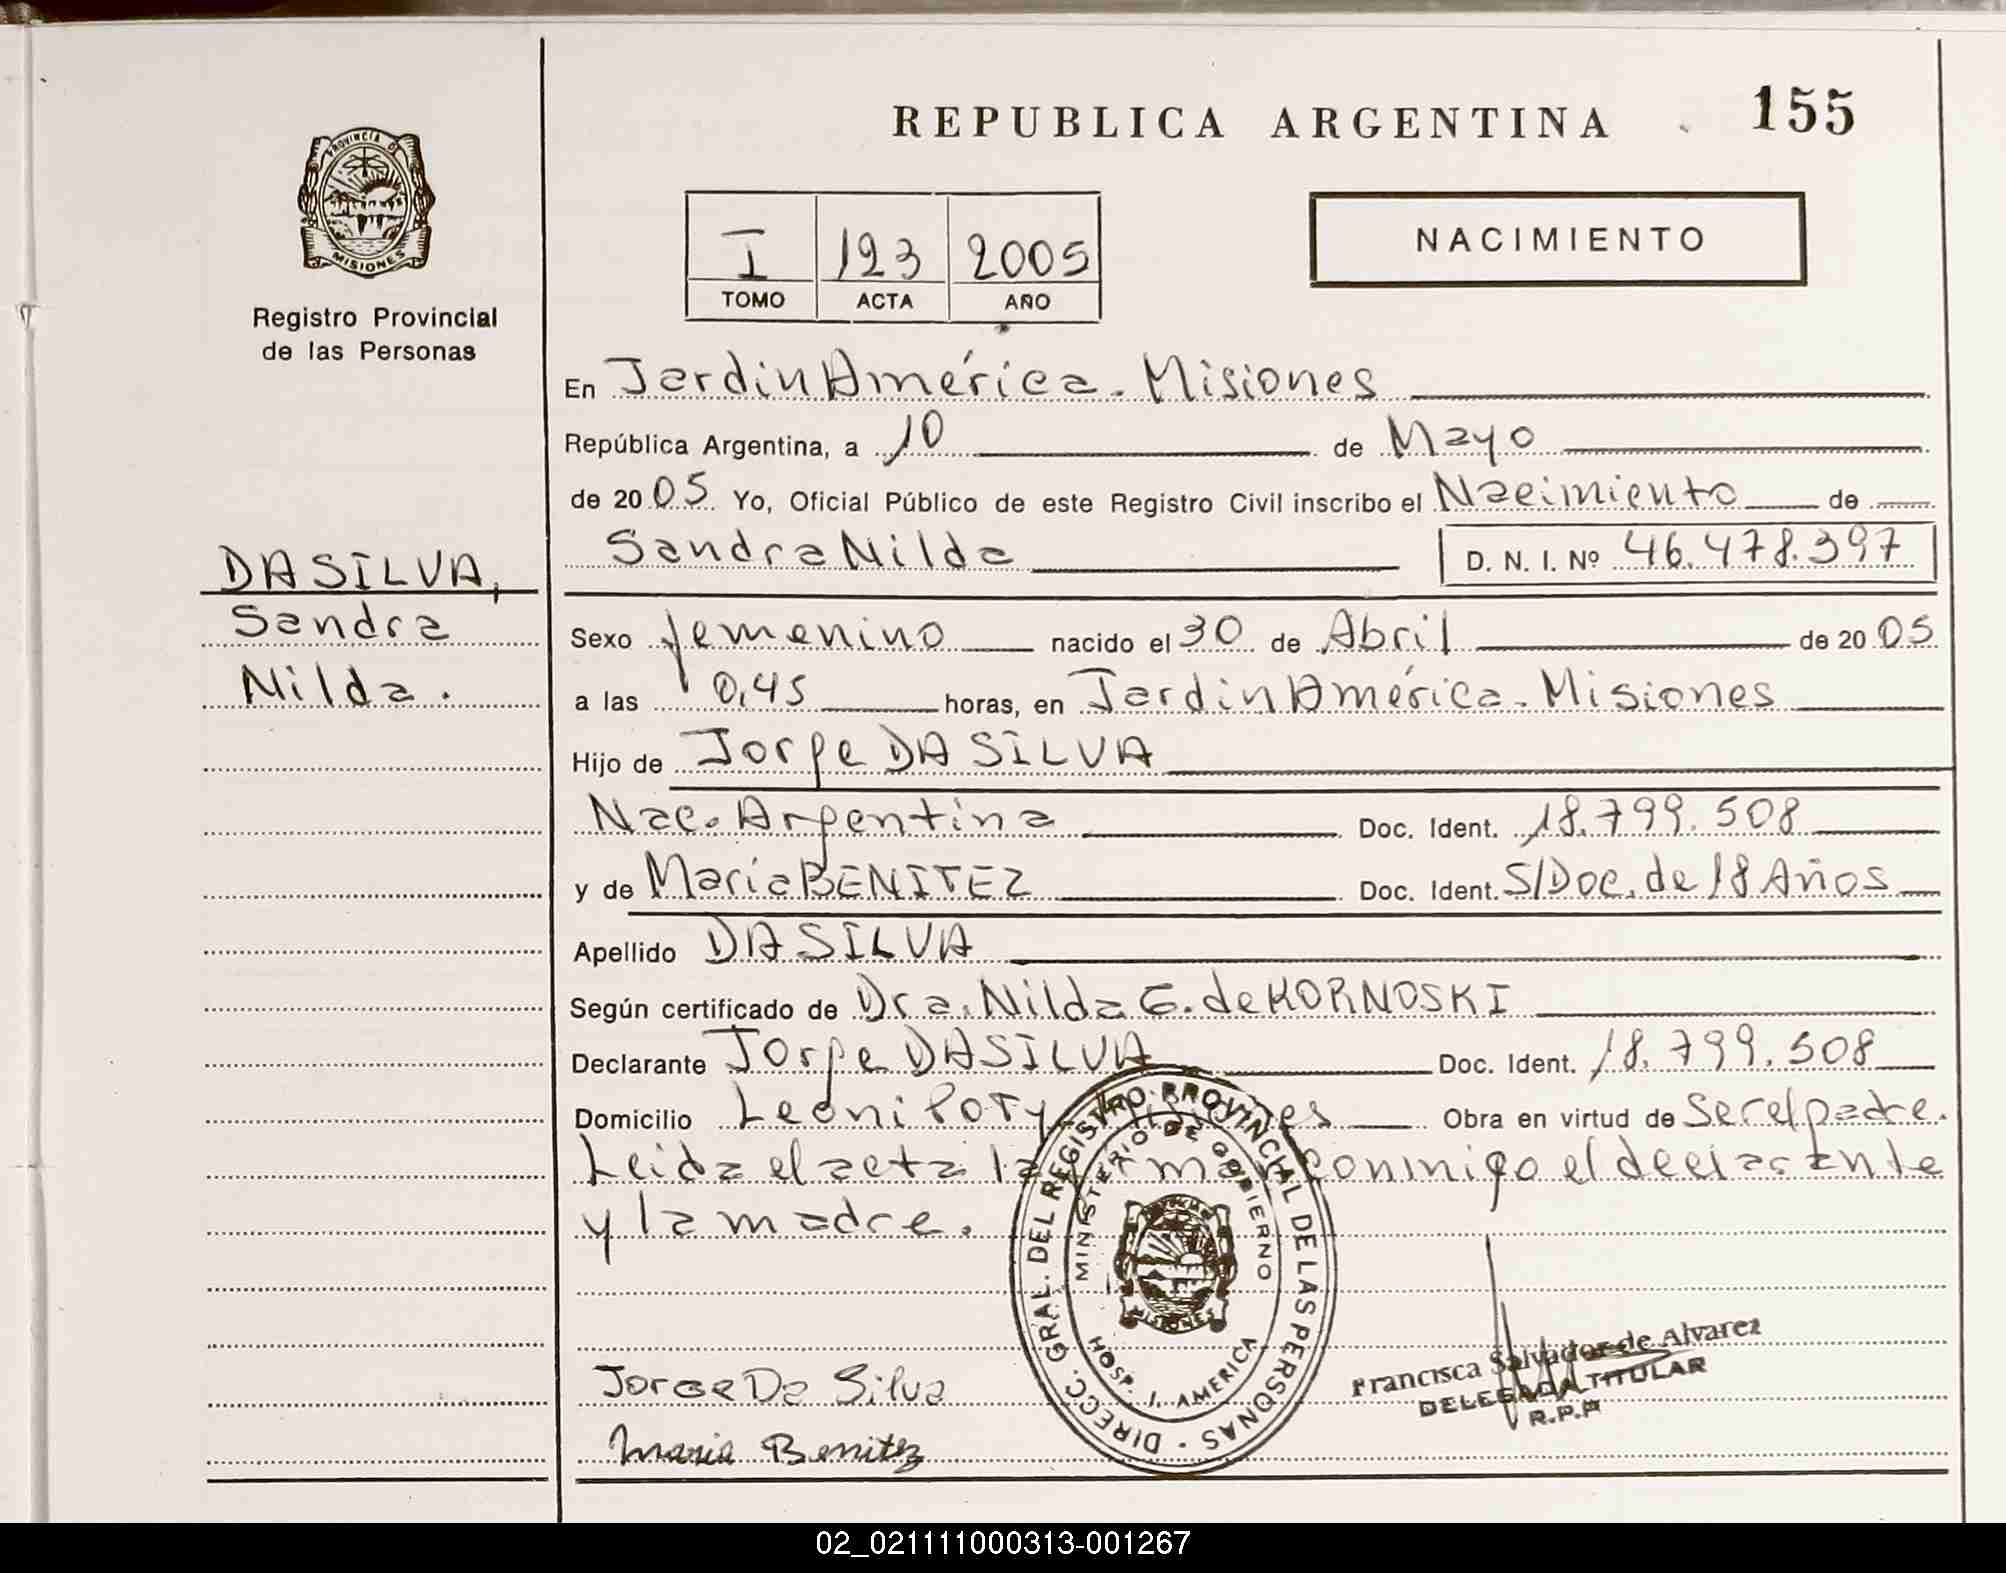 REPUBLICA ARGENTINA 155
PROVINCIA DE
MISIONES
Registro Provincial
de las Personas
I 123 2005
TOMO ACTA AÑO
NACIMIENTO
En Jardin América. Misiones
República Argentina, a 10 de Mayo
de 20 05 Yo, Oficial Público de este Registro Civil inscribo el Nacimiento de
Sandra Nilda D. N. I. Nº 46.478.397
DA SILVA,
Sandra
Nilda.
Sexo femenino nacido el 30 de Abril de 20 05
a las 0,45 horas, en Jardin América. Misiones
Hijo de Jorge DA SILVA
Nac. Argentina Doc. Ident. 18.799.508
y de Maria BENITEZ Doc. Ident. S/Doc. de 18 Años
Apellido DA SILVA
Según certificado de Dra. Nilda G. de KORNOSKI
Declarante Jorge DA SILVA Doc. Ident. 18.799.508
Domicilio Leoni Poty Obra en virtud de Ser el padre.
Leida el acta la conmigo el declarante
y la madre.
DIRECC. GRAL. DEL REGISTRO PROVINCIAL DE LAS PERSONAS
MINISTERIO DE GOBIERNO
MISIONES
HOSP. J. AMERICA
Jorge Da Silva
Maria Benitez
Francisca Salvador de Alvarez
DELEGADA TITULAR
R.P.P
02_021111000313-001267